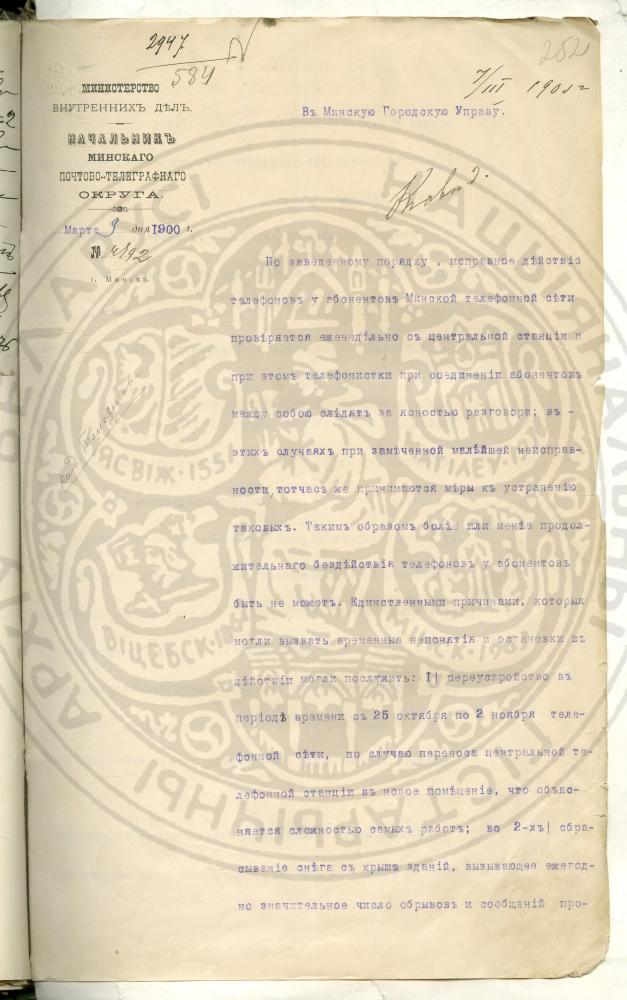 2947
584
252
7/III 1901 г
МИНИСТЕРСТВО
ВНУТРЕННИХЪ ДѢЛЪ.
НАЧАЛЬНИКЪ
МИНСКАГО
ПОЧТОВО-ТЕЛЕГРАФНАГО
ОКРУГА.
Марта 3 дня 1900 г.
№ 4892
г. Минскъ.
Въ Минскую Городскую Управу.
По заведенному порядку , исправное дѣйствіе
телефоновъ у абонентовъ Минской телефонной сѣти
провѣряется еженедѣльно съ центральной станціи и
при этомъ телефонистки при соединеніи абонентовъ
между собою слѣдятъ за ясностью разговора; въ -
этихъ случаяхъ при замѣченной малѣйшей неисправ-
ности тотчасъ же принимаются мѣры къ устраненію
таковыхъ. Такимъ образомъ болѣе или менѣе продол-
жительнаго бездѣйствія телефоновъ у абонентовъ
быть не можетъ. Единственными причинами, которыя
могли вызвать временныя непонятія и остановки въ
дѣйствіи могли послужить: I) переустройство въ
періодѣ времени съ 25 октября по 2 ноября теле-
фонной сѣти, по случаю переноса центральной те-
лефонной станціи въ новое помѣщеніе, что объяс-
няется сложностью самыхъ работъ; во 2-хъ) сбра-
сываніе снѣга съ крышъ зданій, вызывающее ежегод-
но значительное число обрывовъ и сообщеній про-